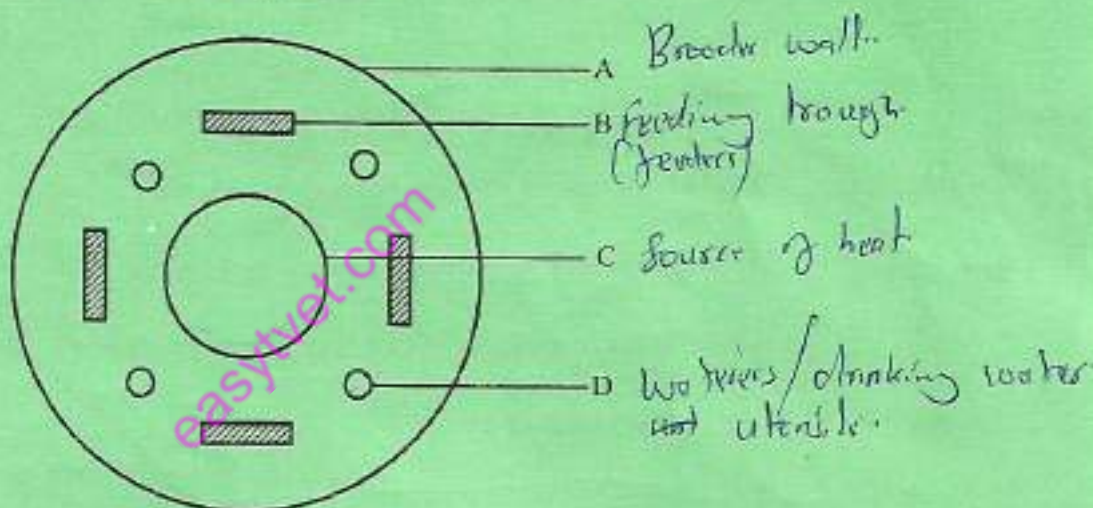 A Brooder wall.
B feeding trough
(feeders)
C Source of heat
D Waterers/drinking water
utensils.
easytvet.com